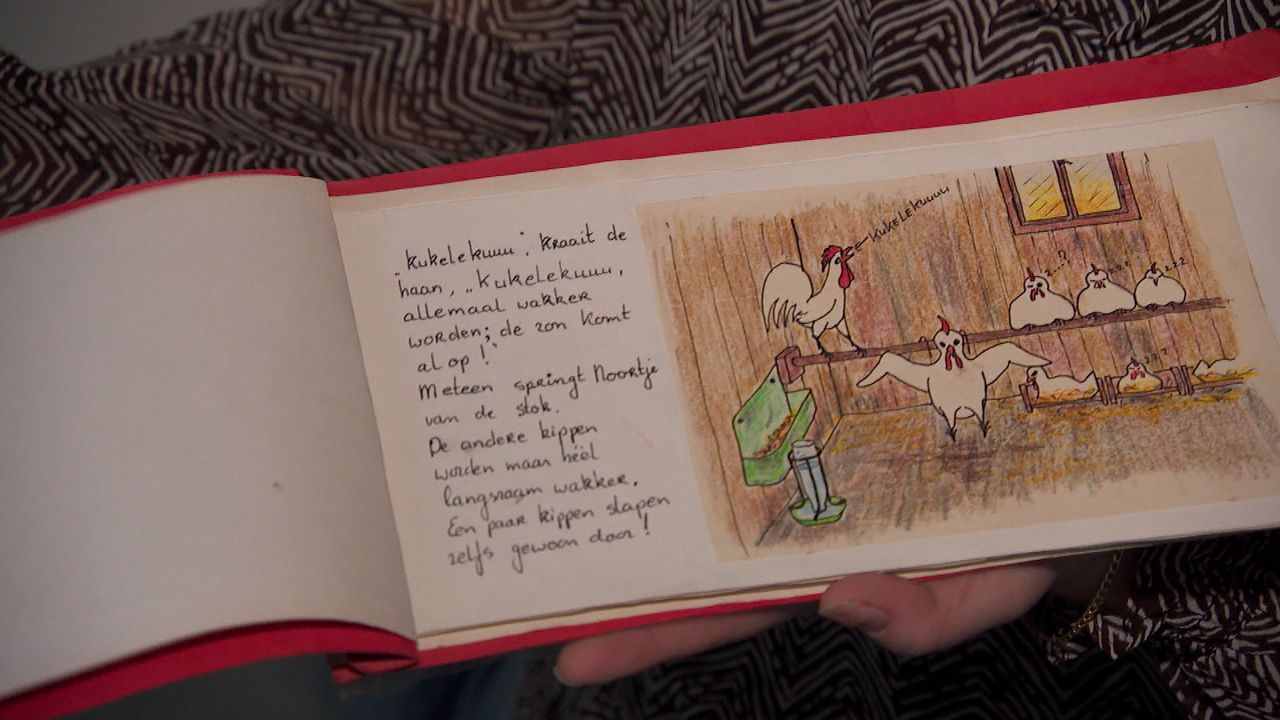 „Kukelekuuu", kraait de
haan, „Kukelekuuu,
allemaal wakker
worden; de zon komt
al op!"
Meteen springt Noortje
van de stok.
De andere kippen
worden maar héél
langzaam wakker.
Een paar kippen slapen
zelfs gewoon door!
KUKELEKUUUU
z...?
z.z.z.
z.z.z.
z.z.z.